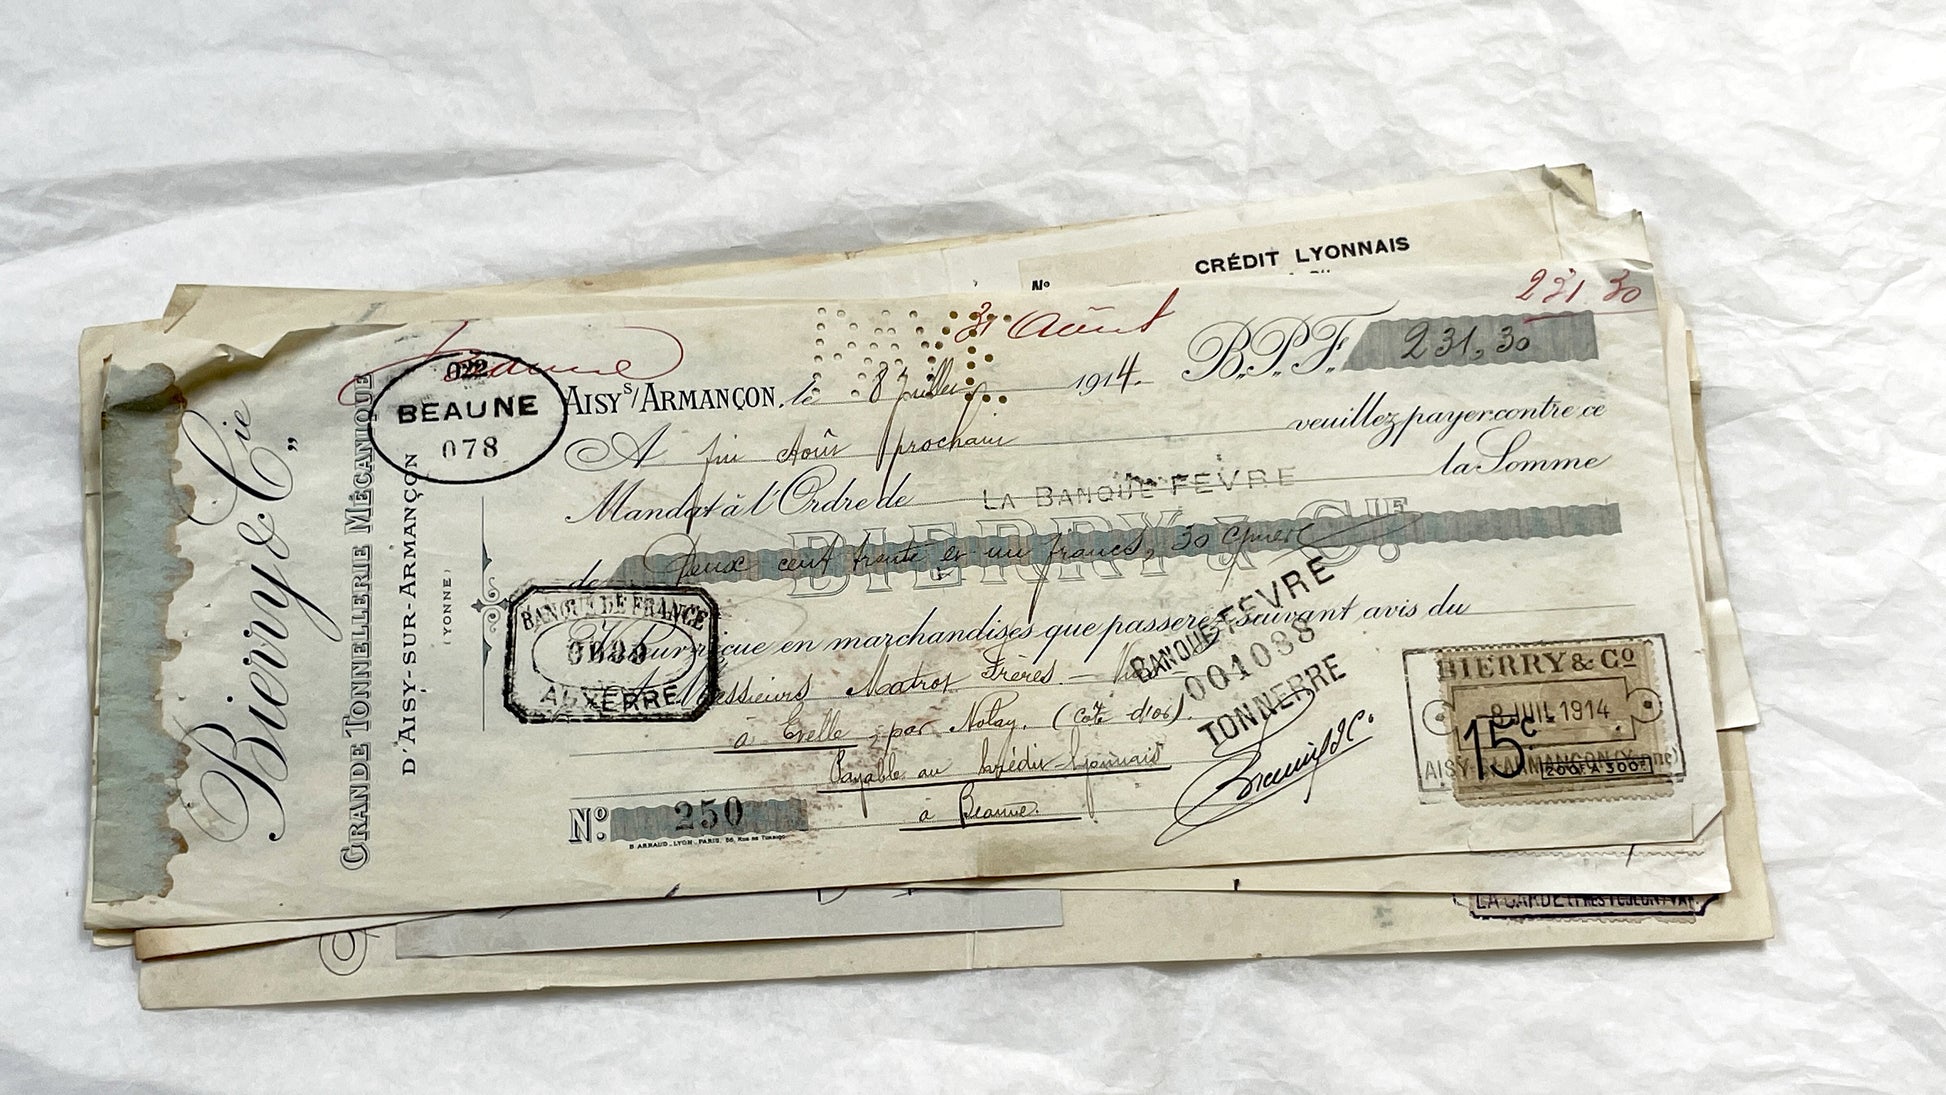 CRÉDIT LYONNAIS
Nº
231.30
31 Août
Beaune
Bierry & Cie
GRANDE TONNELLERIE MÉCANIQUE
D'AISY-SUR-ARMANÇON
(YONNE)
022
BEAUNE
078
AISY S/ARMANÇON, le 8 Juillet 1914. B.P.F. 231,30
A fin Août prochain veuillez payer contre ce
Mandat à l'Ordre de LA BANQUE FEVRE la Somme
BIERRY & CIE
de Deux cent trente et un francs, 30 cmes
Valeur reçue en marchandises que passerez suivant avis du
BANQUE DE FRANCE
AUXERRE
A Messieurs Matrot Frères
à Evelle, par Nolay. (Côte d'or).
Payable au Crédit-Lyonnais
à Beaune.
BANQUE FEVRE
001038
TONNERRE
BIERRY & Cº
8 JUIL 1914
15c
AISY-S-ARMANÇON (Yonne)
200F À 300F
Nº 250
B. ARNAUD_LYON_PARIS